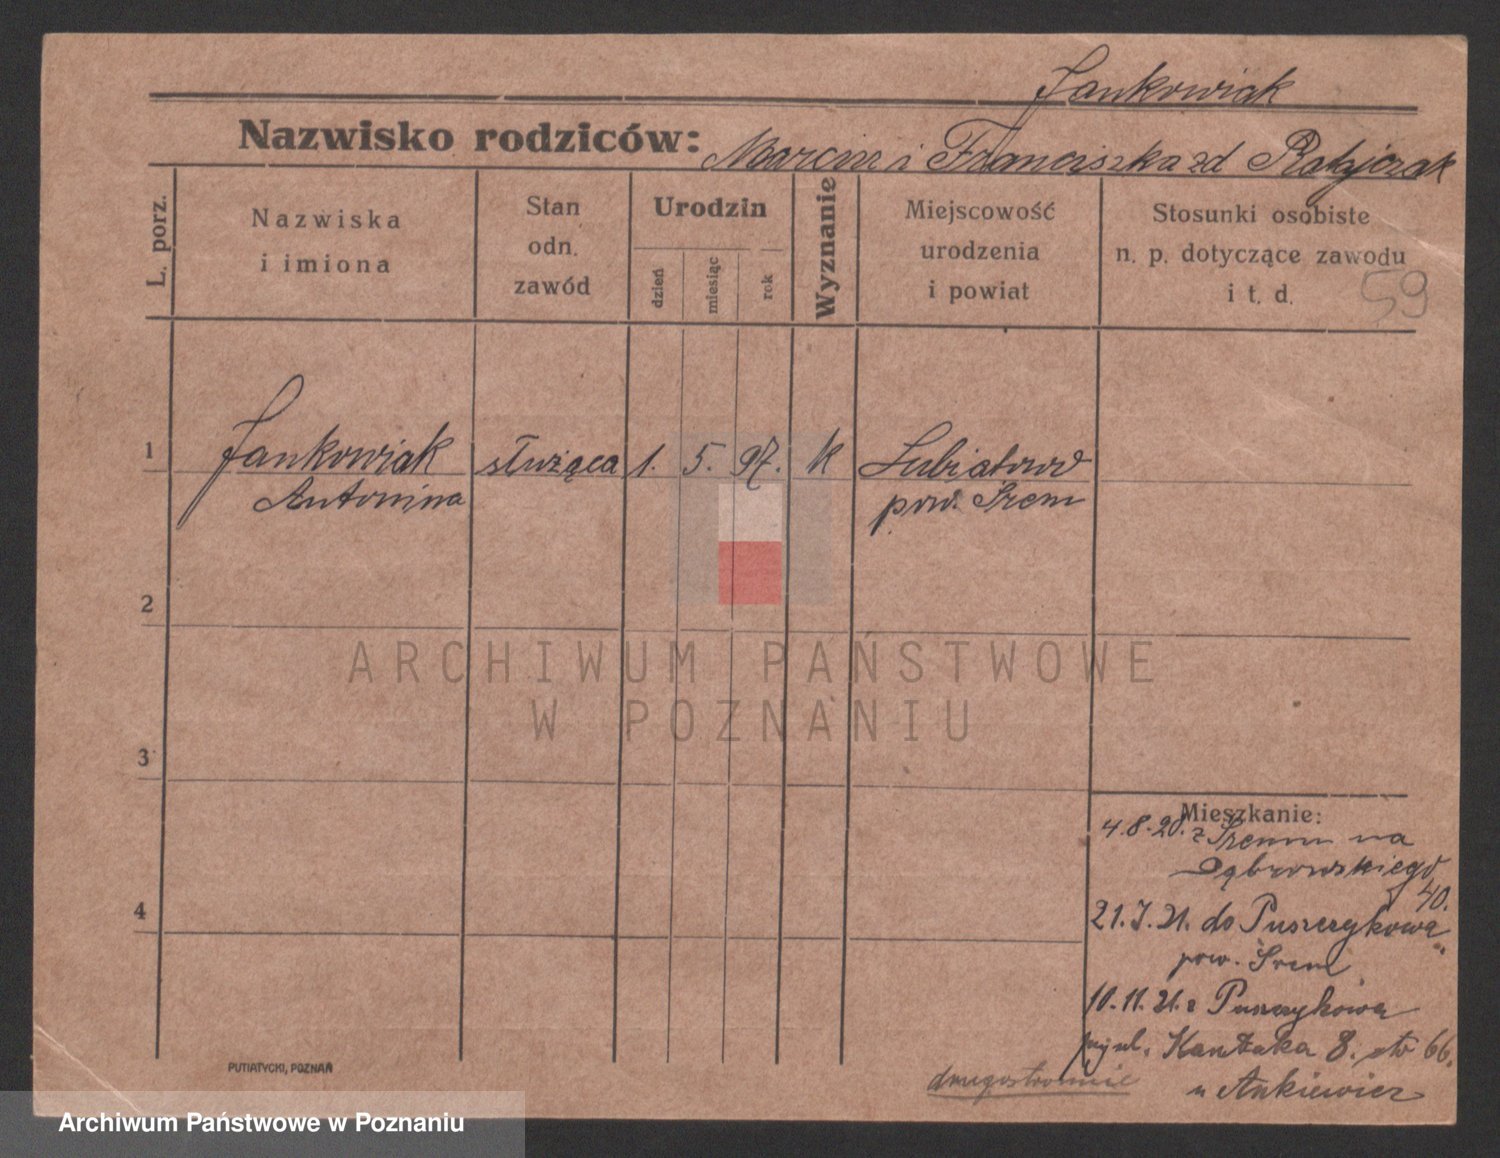 Jankowiak
Nazwisko rodziców: Marcin i Franciszka zd Ratajczak
L. porz.
Nazwiska
i imiona
Stan
odn.
zawód
Urodzin
dzień
miesiąc
rok
Wyznanie
Miejscowość
urodzenia
i powiat
Stosunki osobiste
n. p. dotyczące zawodu
i t. d.
59
1 Jankowiak służąca 1. 5. 97. k Lubiatowo
Antonina pow. Śrem
2
ARCHIWUM PAŃSTWOWE
W POZNANIU
3
Mieszkanie:
4.8.20. z Śremu na
Dąbrowskiego
40.
4
21.7.21. do Puszczykowa
pow. Śrem
10.11.21. z Puszczykowa
ul. Kantaka 8. 66.
u Ankiewicz
drugostronnie
PUTIATYCKI, POZNAŃ
Archiwum Państwowe w Poznaniu